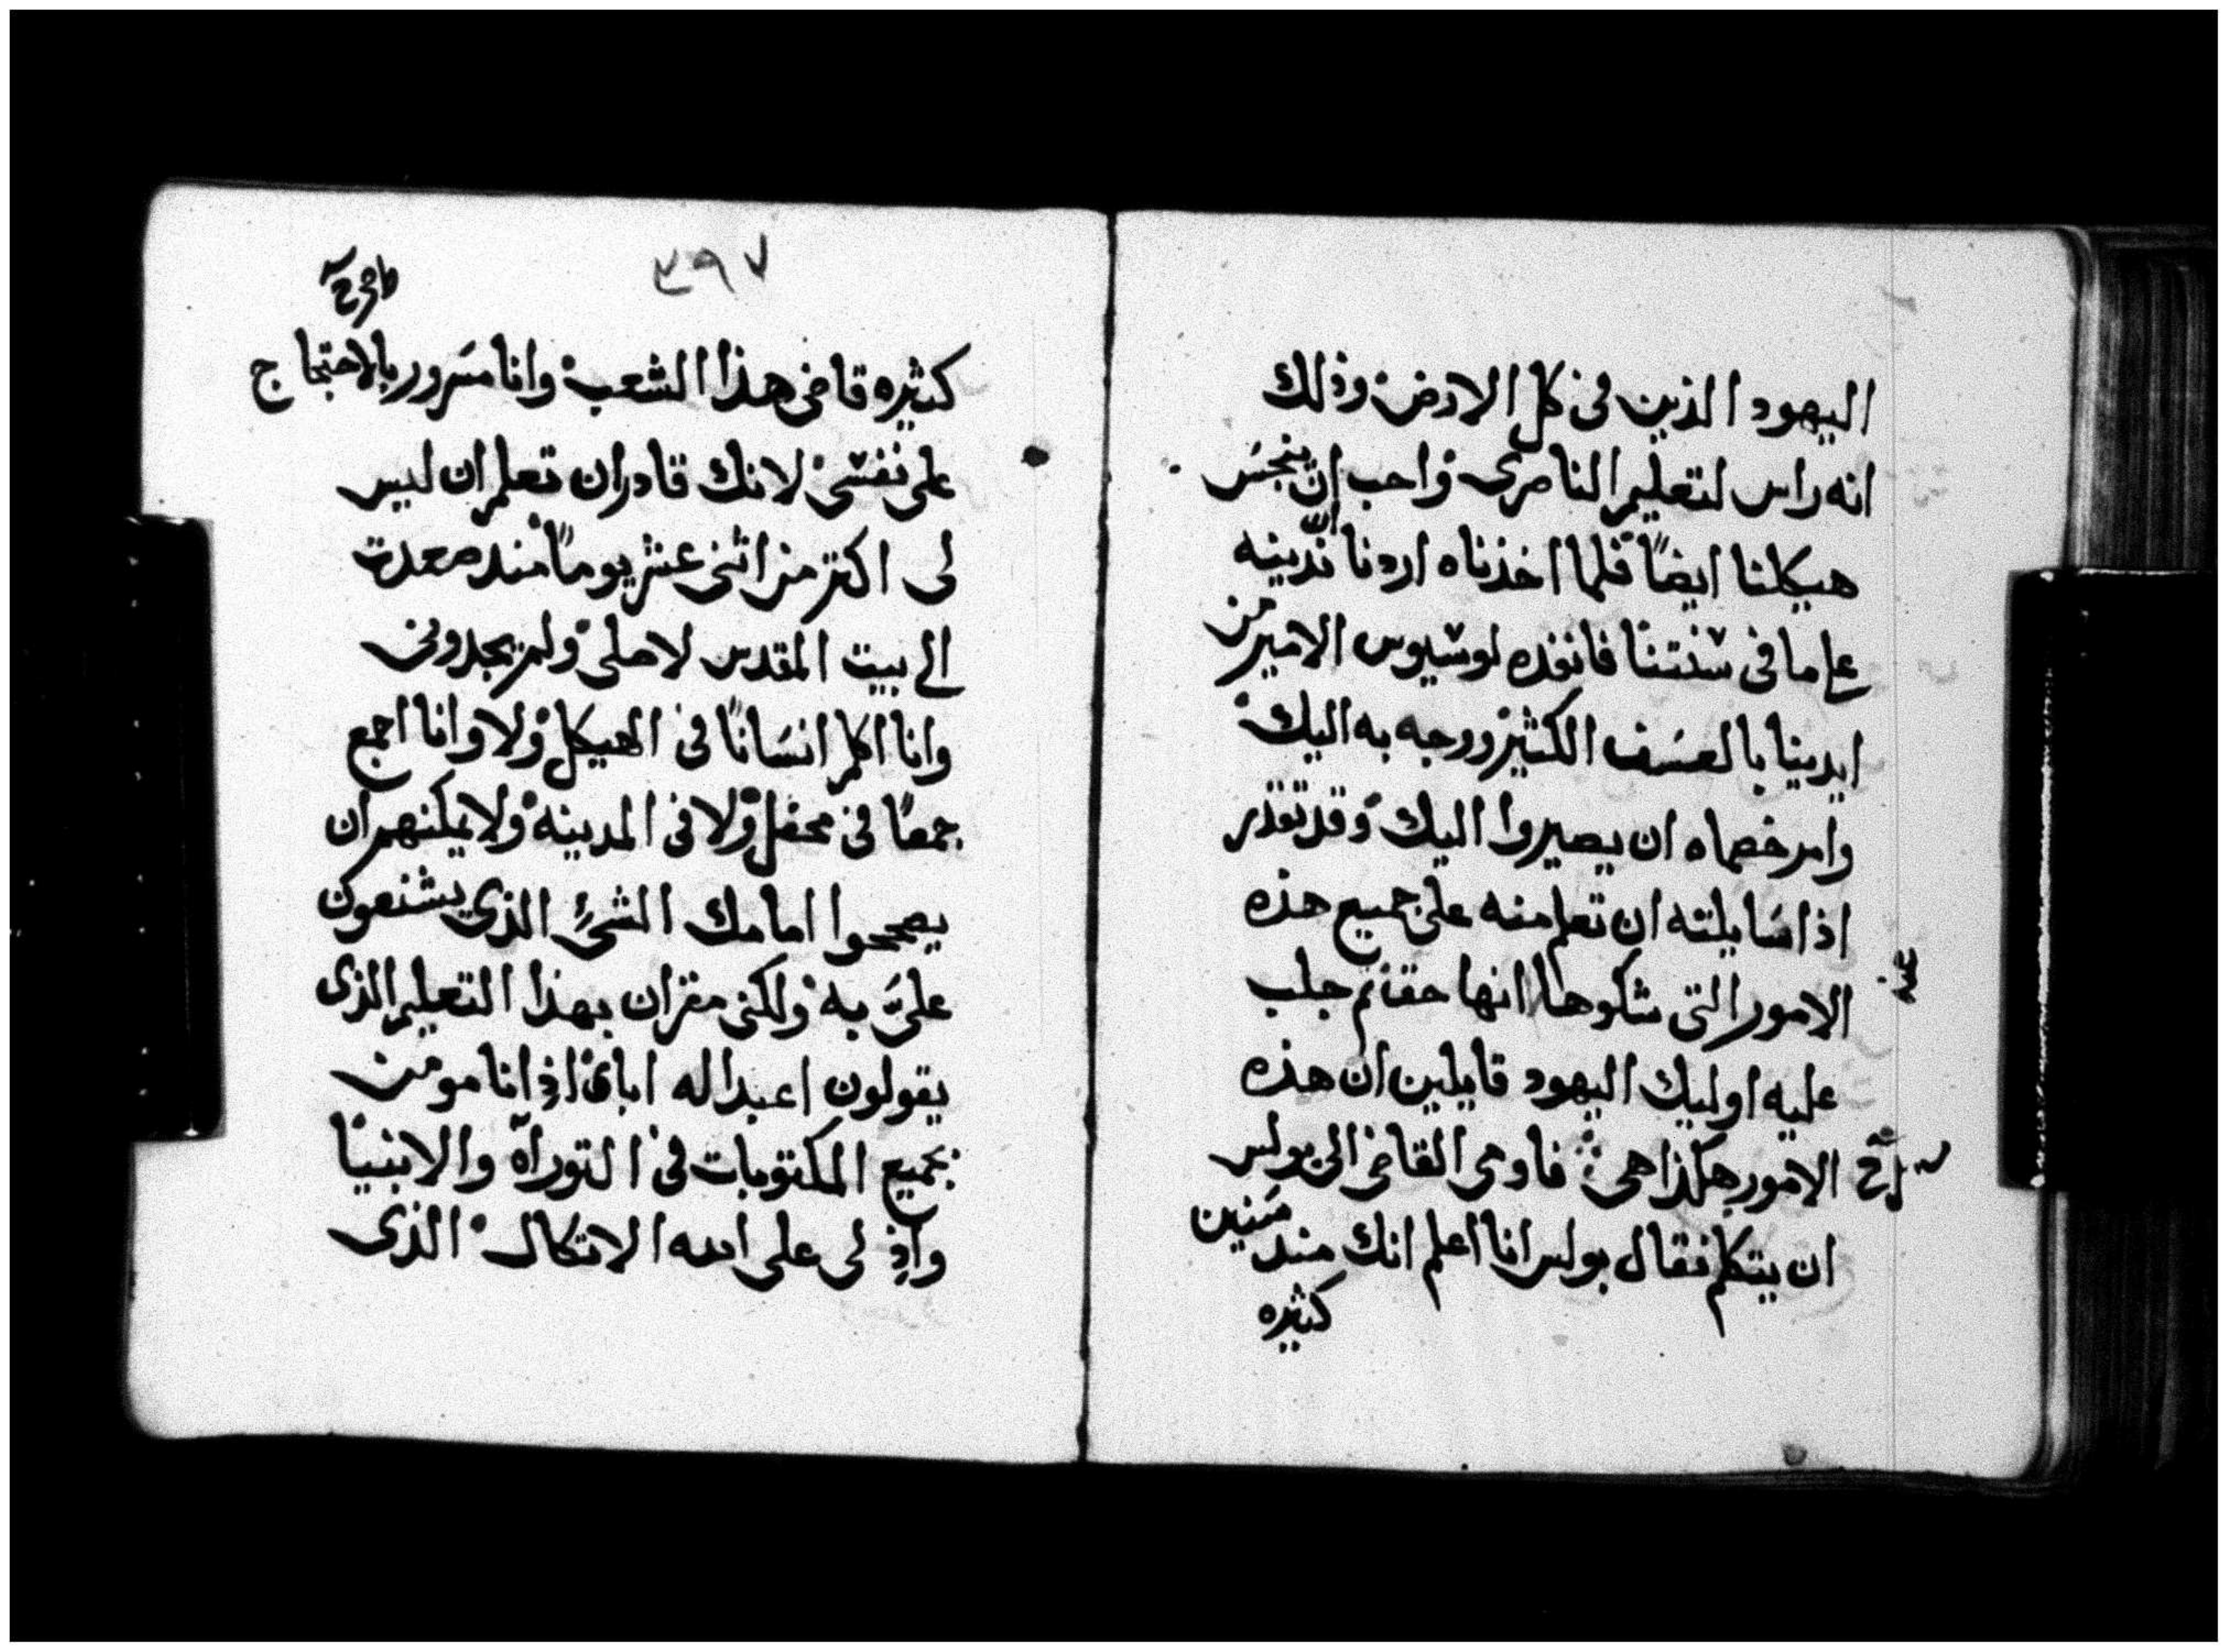 اليهود الذين فى كل الارض وذلك
انه راس لتعليم الناصرى واحب ان ينجس
هيكلنا ايضاً فلما اخذناه اردنا ان ندينه
على ما فى سنتنا فانفذه لوسيوس الامير من
ايدينا بالعسف الكثير ووجه به اليك
وامر خصماه ان يصيروا اليك وقد تقدر
اذا سايلته ان تعلم منه على جميع هذه
الامور التى شكوها انها حقا ثم جلب
عليه اوليك اليهود قايلين ان هذه
الامور هكذا هى فاومى القاضى الى بولس
ان يتكلم فقال بولس انا اعلم انك مند سنين
كثيره
٣٩٧
كثيره قاضى هذا الشعب وانا مسرور بالاحتجاج
على نفسى لانك قادر ان تعلم ان ليس
لى اكتر من اثنى عشر يوماً مند صعدت
الى بيت المقدس لاصلى ولم يجدونى
وانا اكلم انسانًا فى الهيكل ولا وانا اجمع
جمعًا فى محفل ولا فى المدينه ولا يمكنهم ان
يصححوا امامك الشئ الذى يشنعون
علىَّ به ولكنى مقر ان بهذا التعليم الذى
يقولون اعبد اله اباى اذ انا مومن
بجميع المكتوبات فى التوراه والانبيا
واذ لى على الله الاتكال الذى